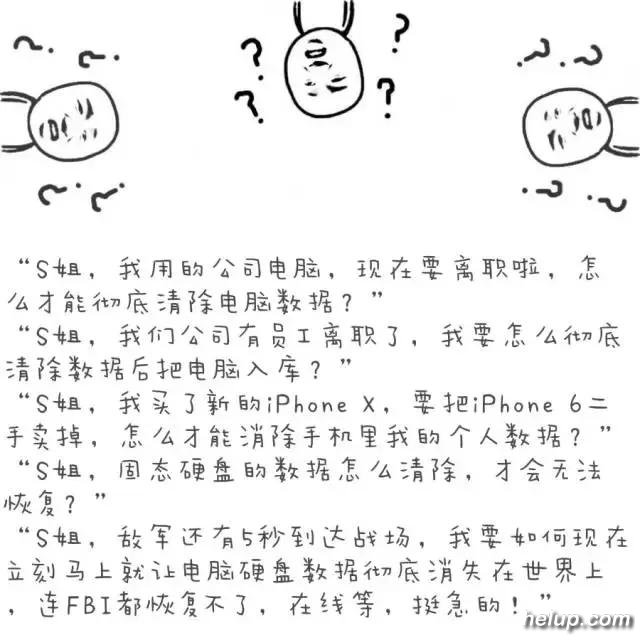 “S姐，我用的公司电脑，现在要离职啦，怎
么才能彻底清除电脑数据？”
“S姐，我们公司有员工离职了，我要怎么彻底
清除数据后把电脑入库？”
“S姐，我买了新的iPhone X，要把iPhone 6二
手卖掉，怎么才能消除手机里我的个人数据？”
“S姐，固态硬盘的数据怎么清除，才会无法
恢复？”
“S姐，敌军还有5秒到达战场，我要如何现在
立刻马上就让电脑硬盘数据彻底消失在世界上
，连FBI都恢复不了，在线等，挺急的！”
helup.com